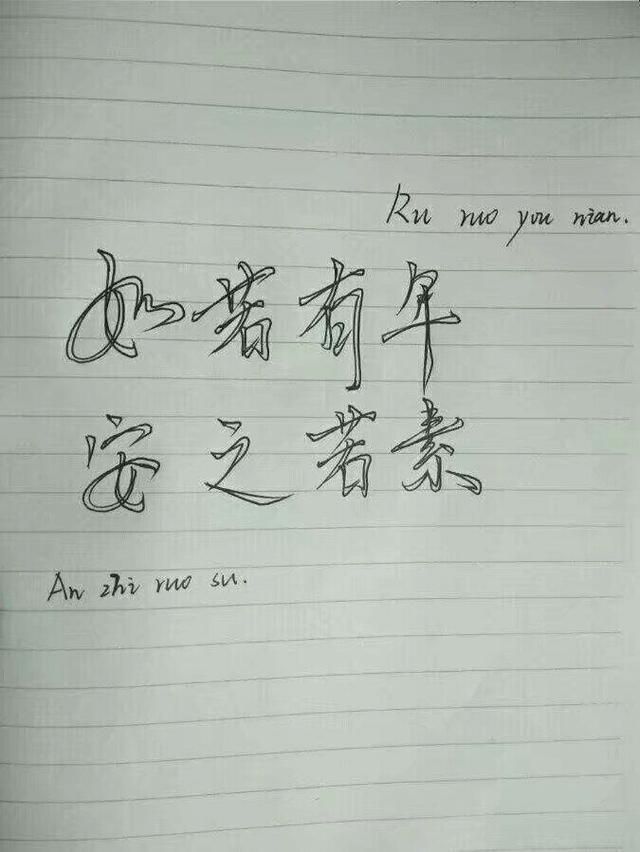 Ru ruo you nian.
如若有年
安之若素
An zhi ruo su.